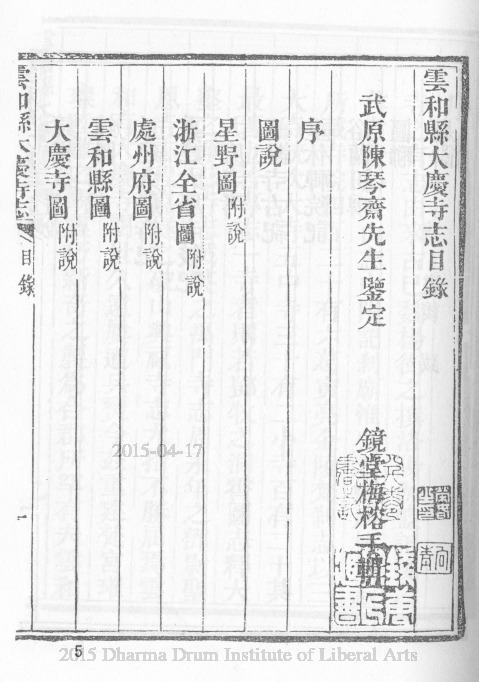 雲和縣大慶寺志目錄
武原陳琴齋先生鑒定
鏡堂梅榕手輯
序
圖說
星野圖附說
浙江全省圖附說
處州府圖附說
雲和縣圖附說
大慶寺圖附說
雲和縣大慶寺志 目錄
一
2015-04-17
5
2015 Dharma Drum Institute of Liberal Arts